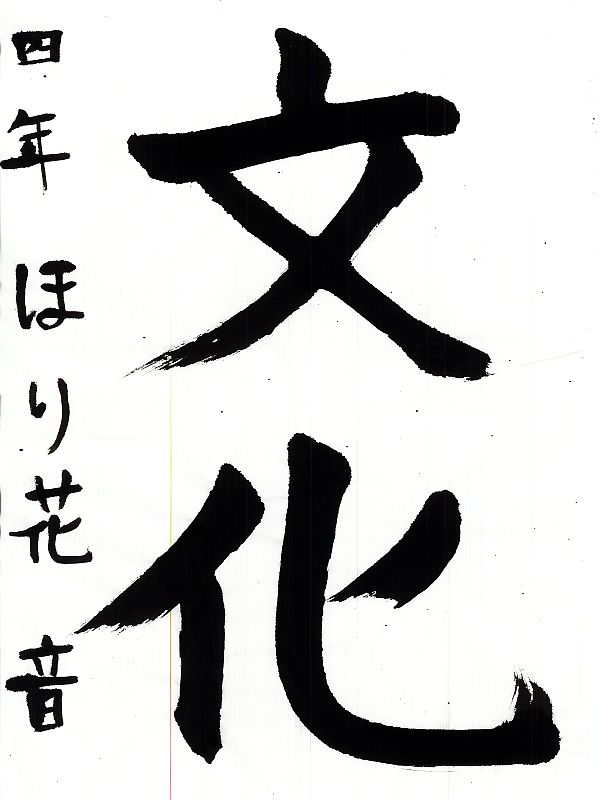 文化
四年 ほり花音